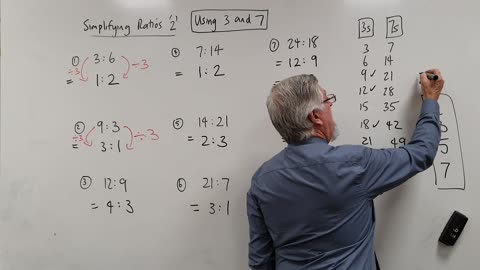 Simplifying Ratios "2" Using 3 and 7
① 3:6
÷3 ÷3
= 1:2
② 9:3
÷3 ÷3
= 3:1
③ 12:9
= 4:3
④ 7:14
= 1:2
⑤ 14:21
= 2:3
⑥ 21:7
= 3:1
⑦ 24:18
= 12:9
3s 7s
3 7
6 14
9 ✓ 21
12 ✓ 28
15 35
18 ✓ 42
21 49
3
5
7